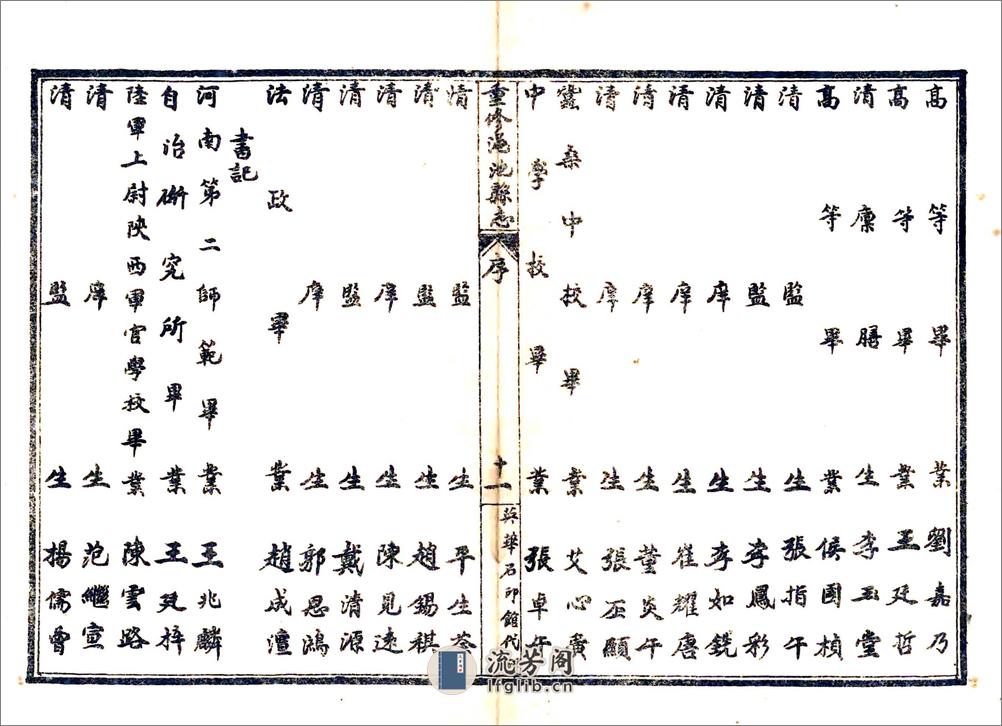 高等畢業劉嘉乃
高等畢業王廷哲
清廩膳生李玉堂
高等畢業侯國楨
清監生張指午
清監生李鳳彩
清庠生李如銑
清庠生崔耀唐
清庠生董炎午
清庠生張丕顯
蠶桑中校畢業艾心廣
中學校畢業張卓午
重修澠池縣志
序
十一
英華石印館代
清監生平生荃
清監生趙錫祺
清庠生陳見遠
清監生戴清源
清庠生郭恩鴻
法政畢業趙成澶
書記
河南第二師範畢業王兆麟
自治研究所畢業王廷梓
陸軍上尉陝西軍官學校畢業陳雲路
清庠生范繼宣
清監生楊儒會
流芳阁
lfglib.cn